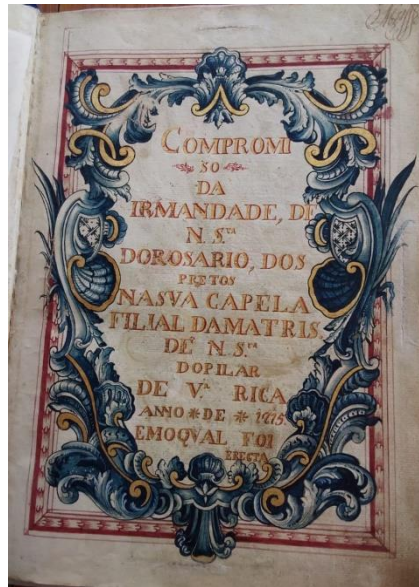 COMPROMI
SO
DA
IRMANDADE, DE
N. S.ra
DOROSARIO, DOS
PRETOS
NASVA CAPELA
FILIAL DAMATRIS
DE N. S.ra
DOPILAR
DE V.a RICA
ANNO * DE * 1715.
EMOQVAL FOI
ERECTA